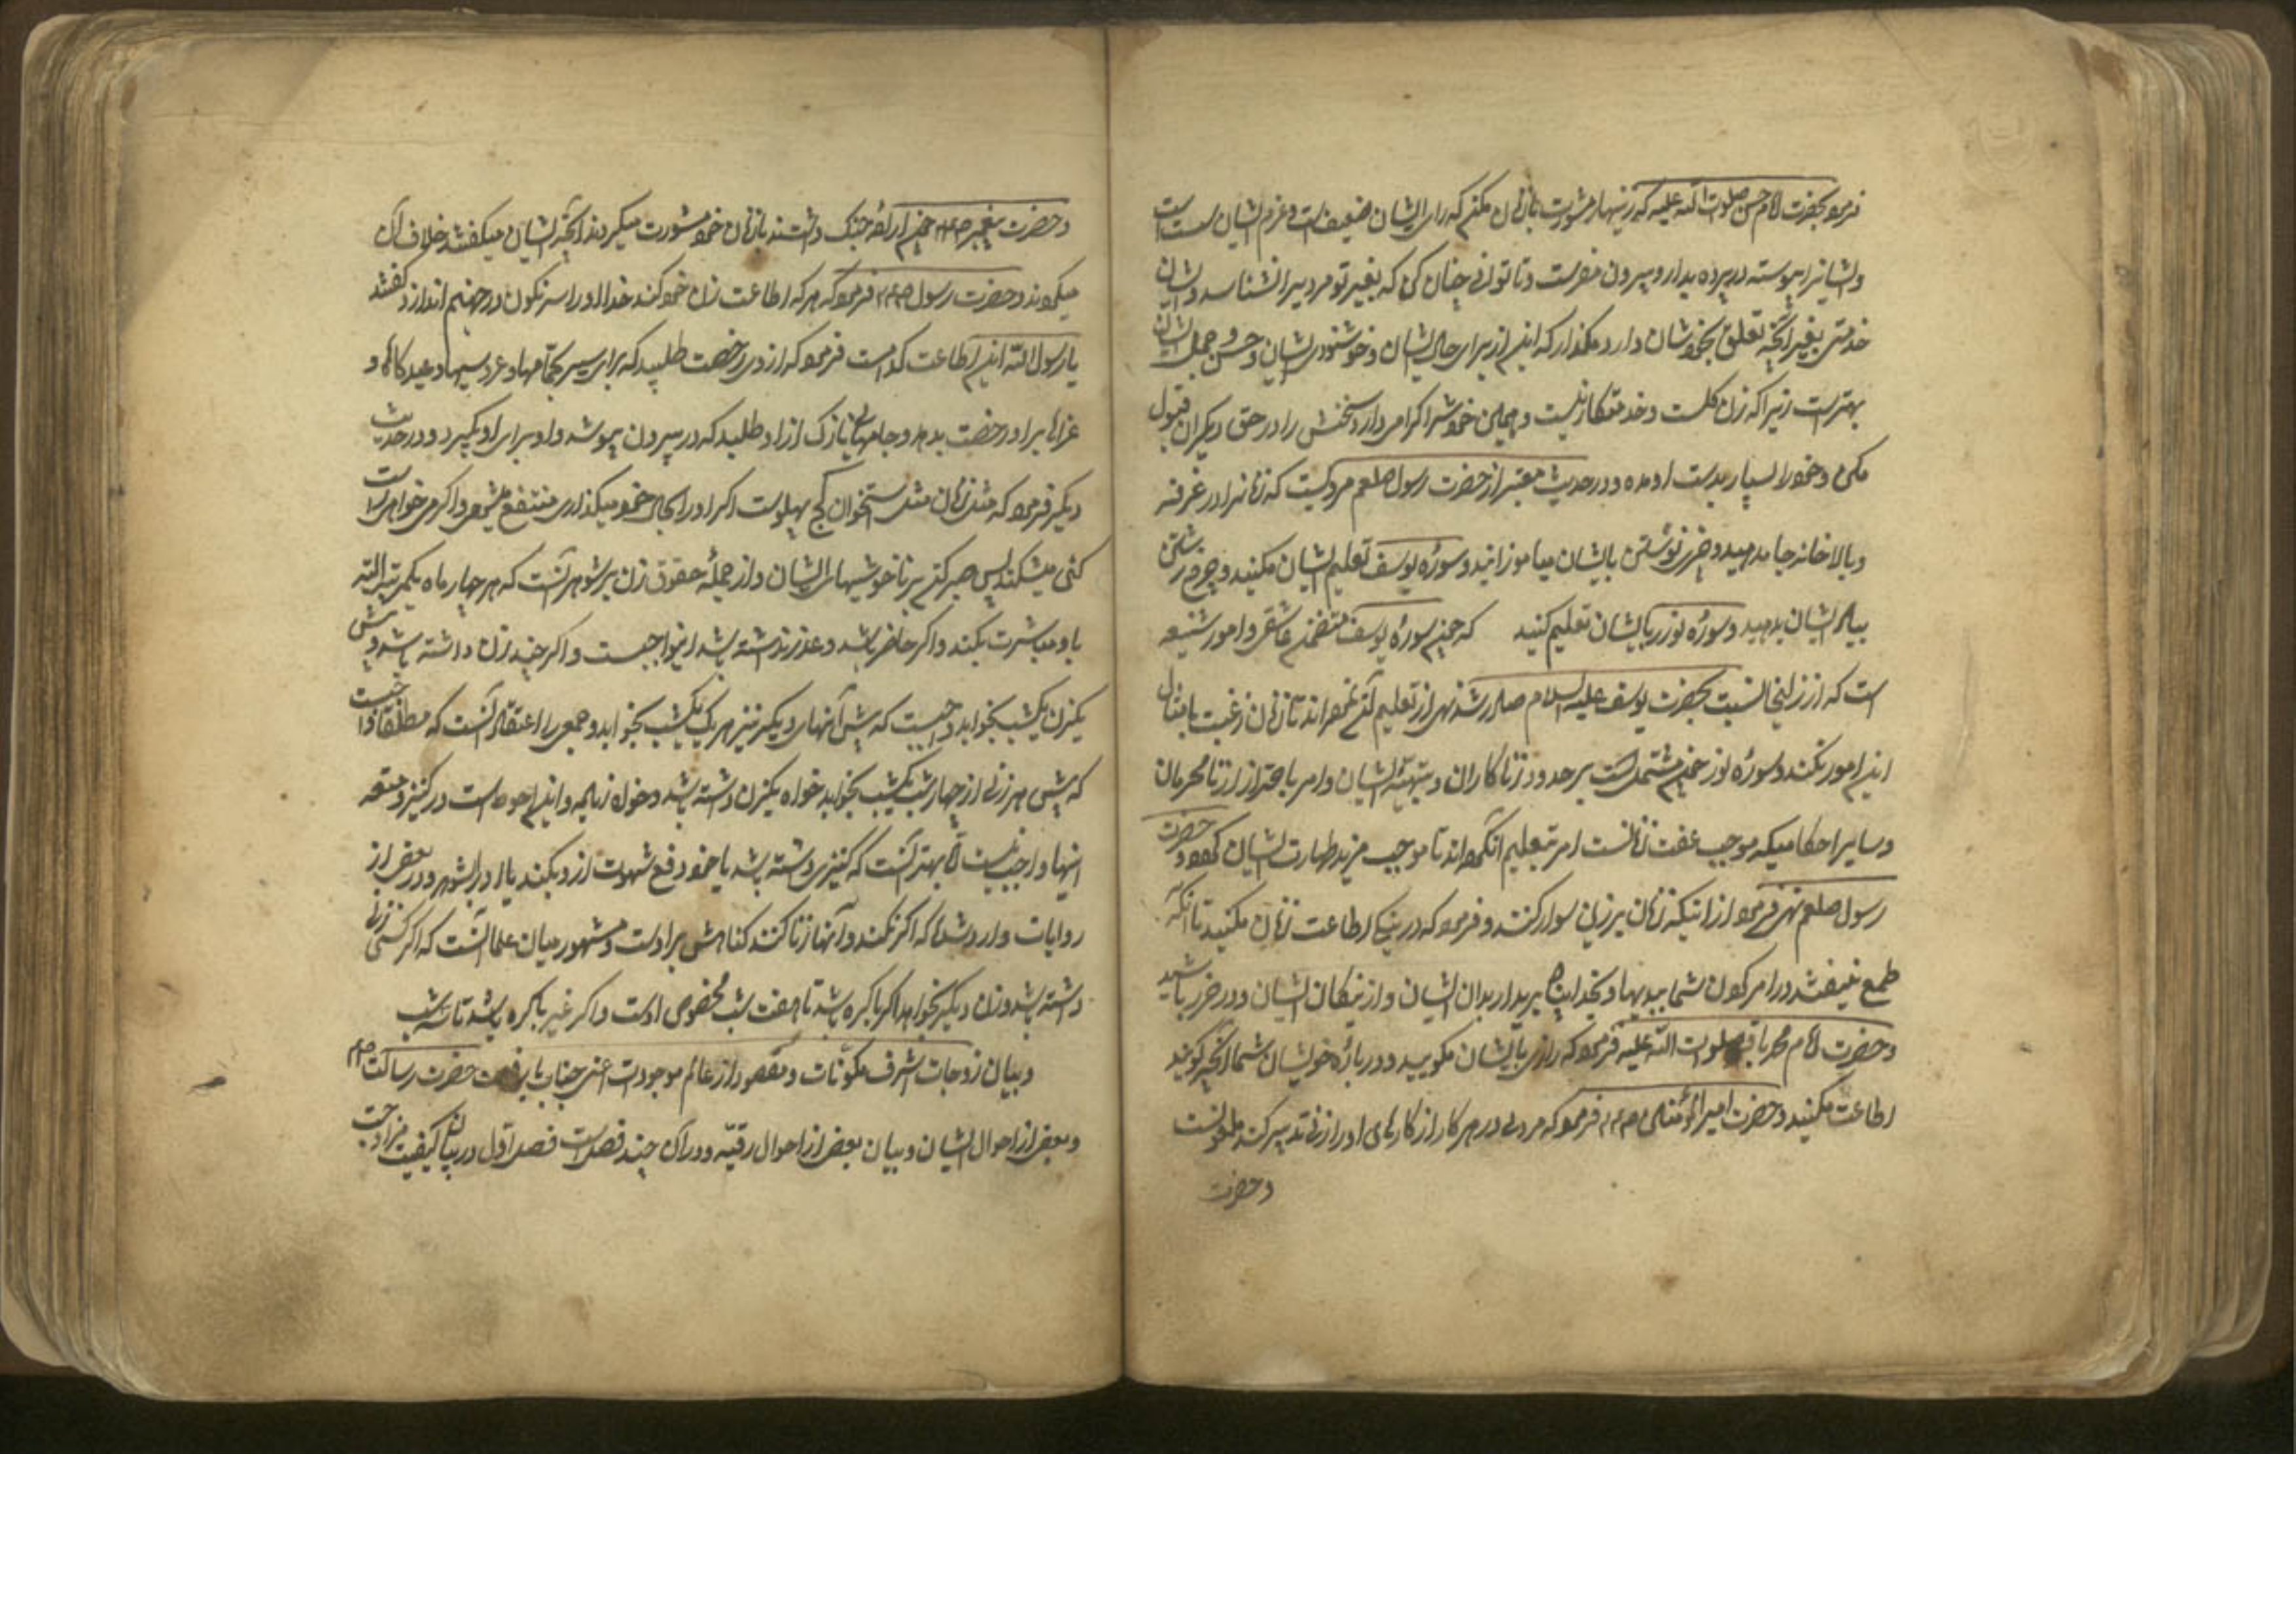 فرمود بحضرت امام حسن صلوات الله علیه که زینهار مشورت با زنان مکنم که رای ایشان ضعیف است و عزم ایشان سست است
و ایشانرا پیوسته در پرده بدار و بیرون مفرست و تا توانی چنان کن که بغیر تو مردیرا نشناسد و بایشان
خدمتی بغیر آنچه تعلق بخودشان دارد مگذار که این از برای حال ایشان و خوشنودی ایشان و حسن و جمال ایشان
بهتر است زیرا که زن گلست و خدمتکار نیست و همین خودش را گرامی دار و سخنش را در حق دیگران قبول
مکن و خود را بسیار بدست او مده و در حدیث معتبر از حضرت رسول صلعم مرویست که زنانرا در غرفه
و بالاخانه جا مدهید و چیز نوشتن بایشان میاموزانید و سوره یوسف تعلیم ایشان مکنید و چرخ رشتن
بیاد ایشان بدهید و سوره نور را بایشان تعلیم کنید که چون سوره یوسف متضمن عاشقی و امور شنیعه
است که از زلیخا نسبت بحضرت یوسف علیه السلام صادر شد نهی از تعلیم آن نموده‌اند تا زنان رغبت بامثال
این امور نکنند و سوره نور چون مشتملست بر حدود زناکاران و تنبیه ایشان و امر باحتراز از نامحرمان
و سایر احکامیکه موجب عفت زنانست امر بتعلیم آن نموده‌اند تا موجب مزید طهارت ایشان گردد و حضرت
رسول صلعم نهی فرمود از اینکه زنان بر زین سوار کنند و فرمود که در نیکی اطاعت زنان مکنید تا آنکه
طمع نیفتند در امر کردن شما ببدیها و بخدا پناه برید از بدان ایشان و از نیکان ایشان و در حذر باشید
و حضرت امام محمد باقر صلوات الله علیه فرمود که رازی بایشان مگویید و درباره خویشان شما آنچه گویند
اطاعت مکنید و حضرت امیر المؤمنین ع م فرمود که مردی در هر کار از کارهای او را زنی تدبیر کند ملعونست
و حضرت
و حضرت پیغمبر ص ع م چون اراده جنگ داشتند با زنان خود مشورت میکردند آنچه ایشان میگفتند خلاف آن
میکردند و حضرت رسول ص ع م فرمود که هر که اطاعت زن خود کند خدا او را سرنگون در جهنم اندازد گفتند
یا رسول الله این اطاعت کدامست فرمود که از وی رخصت طلبد که برای سیر بحمامها و عروسیها و عیدگاه و
عزاها برود و رخصت بدهد و جامهای نازک از او طلبد که در بیرون بپوشد و او برای او بگیرد و در حدیث
دیگر فرمود که مثل زنان مثل استخوان کج پهلوست اگر او را بحال خود میگذاری منتفع میشوی و اگر میخواهی راست
کنی میشکند پس صبر کن بر ناخوشیهای ایشان و از جمله حقوق زن بر شوهر آنست که هر چهار ماه یکمرتبه البته
با او مباشرت بکند و اگر حاضر باشد و عذری نداشته باشد این واجبست و اگر چند زن داشته باشد و پیش
یکزن یکشب بخوابد واجبست که پیش آنهای دیگر نیز هر یک یکشب بخوابد و جمعی را اعتقاد آنست که مطلقا واجبست
که پیش هر زنی از چهار شب یکشب بخوابد خواه یکزن داشته باشد و خواه زیاده و این احوط است در کنیز و متعه
اینها واجب نیست اما بهتر آنست که کنیزی داشته باشد یا خود دفع شهوت از او بکند یا او را بشوهر و در بعض از
روایات وارد شده که اگر نکند و آنها زنا کنند گناهش بر اوست و مشهور میان علما آنست که اگر کسی زنی
داشته باشد و زن دیگر بخواهد اگر باکره باشد تا هفت شب مخصوص اوست و اگر غیر باکره باشد تا سه شب
و بیان زوجات اشرف مکونات و مقصود از عالم موجودات اعنی جناب با رفعت حضرت رسالت ص ع م
و بعضی از احوال ایشان و بیان بعضی از احوال رقیه و در آن چند فصلست فصل اول در بیان کیفیت مزاوجت